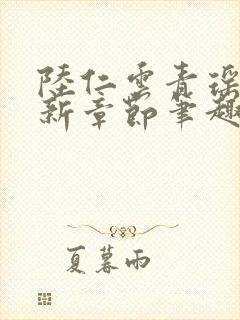 陸仁雲青瑤
新章節筆趣
夏暮雨